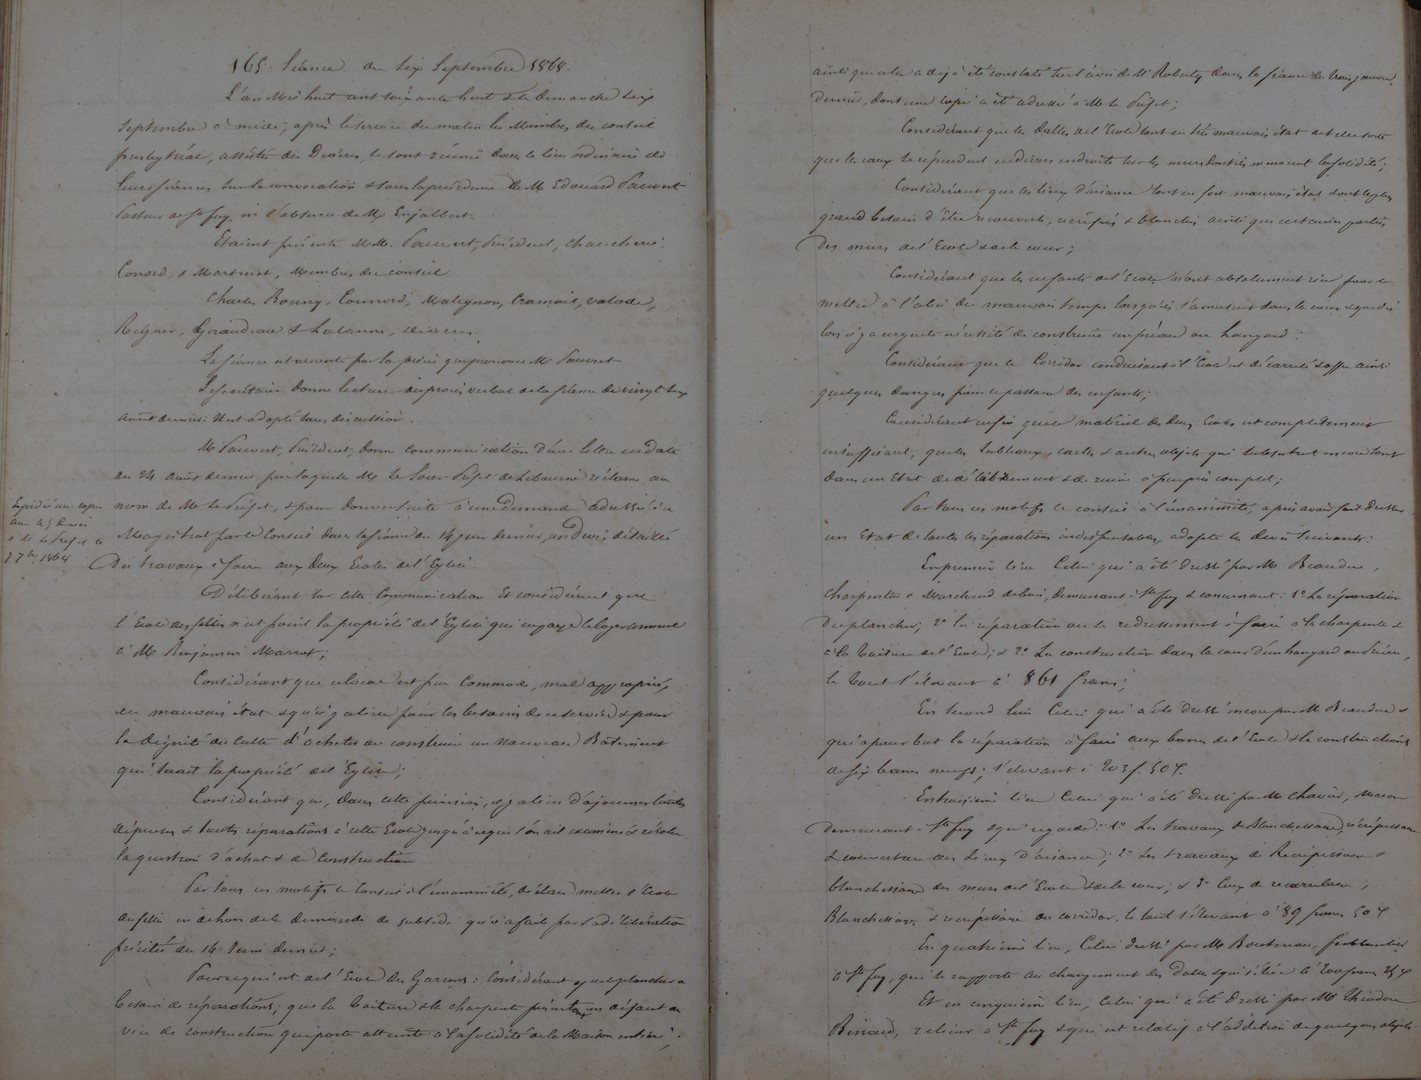 165. Séance du six Septembre 1868.
L'an Mil huit cent soixante huit & le dimanche six
Septembre à midi, après le service du matin les Membres du conseil
presbytéral, assistés des Diacres, se sont réunis dans le lieu ordinaire de
leurs séances sur la convocation & sous la présidence de M. Edouard Pauvert
Pasteur de Ste foy, en l'absence de M. Enjalbert.
Etaient présents MM. Pauvert, Président,
Conord, & Martinet, Membres du conseil
Charles Rouny, Malignon, Cramois, Valade,
Reynier, Giraudeau & Lalanne, diacres.
La séance est ouverte par la prière que prononce M. Pauvert
Le Secrétaire donne lecture du procès verbal de la séance du vingt six
août dernier. Il est adopté sans discussion.
M. Pauvert, Président, donne communication d'une lettre en date
du 24 août dernier par laquelle M. le Sous-Préfet de Libourne réclame au
nom de M. le Préfet, & pour donner suite à une demande adressée à ce
Magistrat par le Conseil dans la séance du 14 juin dernier, un Devis détaillé
des travaux à faire aux deux Ecoles de l'Eglise.
Expédié une copie
à M. le Préfet le
7 7bre 1868
Délibérant sur cette Communication Et considérant que
l'Ecole des filles n'est point la propriété de l'Eglise qui en paye le loyer annuel
à M. Benjamin Marrot;
Considérant que ce local est peu Commode, mal approprié,
en mauvais état & qu'il y a lieu pour les besoins du service & pour
la dignité du Culte d'acheter ou construire un nouveau Bâtiment
qui serait la propriété de l'Eglise;
Considérant que, dans cette prévision, il y a lieu d'ajourner toutes
dépenses & toutes réparations à cette Ecole jusqu'à ce que l'on ait examiné & résolu
la question d'achat & de Construction
Par tous ces motifs le Conseil à l'unanimité, déclare mettre l'Ecole
des filles en dehors de la demande de subside qu'il a fait par sa délibération
précitée du 14 Juin dernier;
Pour ce qui est de l'Ecole des Garçons: Considérant que le plancher a
besoin de réparations; que la toiture & la charpente présentent un défaut ou
vice de construction qui porte atteinte à la solidité de la Maison entière;
ainsi que cela a déjà été constaté sur l'avis de M. Roberty dans la séance du
dernier, dont une copie a été adressée à M. le Préfet;
Considérant que les dalles de l'Ecole sont en très mauvais état de telle sorte
que les eaux se répandent en divers endroits sur les murs dont ils menacent la solidité;
Considérant que les lieux d'aisance sont en fort mauvais état & ont le plus
grand besoin d'être recouverts, recrépis & blanchis ainsi que certaines parties
des murs de l'Ecole & de la cour;
Considérant que les enfants de l'Ecole n'ont absolument rien pour se
mettre à l'abri du mauvais temps lorsqu'ils s'amusent dans la cour & que dès
lors il y a urgente nécessité de construire un préau ou hangard;
Considérant que le Corridor conduisant à l'Ecole est décarrelé & offre ainsi
quelques dangers pour le passage des enfants;
Considérant enfin que le matériel des deux Ecoles est complètement
insuffisant, que les tableaux, cartes & autres objets qui subsistent encore sont
dans un Etat de délabrement & de ruine à peu près complet;
Par tous ces motifs le conseil à l'unanimité, après avoir fait dresser
un Etat de toutes les réparations indispensables, adopte les devis suivants:
En premier lieu Celui qui a été dressé par M. Beaudou,
charpentier & Marchand de bois, demeurant à Ste foy & concernant: 1° La réparation
du plancher; 2° la réparation ou le redressement à faire à la charpente &
à la toiture de l'Ecole; & 3° La construction dans la cour d'un hangard ou Préau,
le tout s'élevant à 861 francs;
En second lieu Celui qui a été dressé encore par M. Beaudou &
qui a pour but la réparation à faire aux bancs de l'Ecole & la construction
de six bancs neufs; s'élevant à 203 f. 50 c.
En troisième lieu Celui qui a été dressé par M. Chavier, Maçon
demeurant à Ste foy & qui regarde: 1° Les travaux de Blanchissage, recrépissage
& couverture des Lieux d'aisance; 2° Les travaux de Recrépissage &
blanchissage des murs de l'Ecole & de la cour; & 3° Ceux de recarrelage;
Blanchissage & recrépissage du corridor, le tout s'élevant à 89 francs 50 c
En quatrième lieu, Celui dressé par M. ferblantier
à Ste foy, qui se rapporte au changement des Dalles & qui s'élève à 200 francs 25 c
Et en cinquième lieu, Celui qui a été dressé par M. Théodore
Renaud, relieur à Ste foy & qui est relatif à l'addition de quelques objets